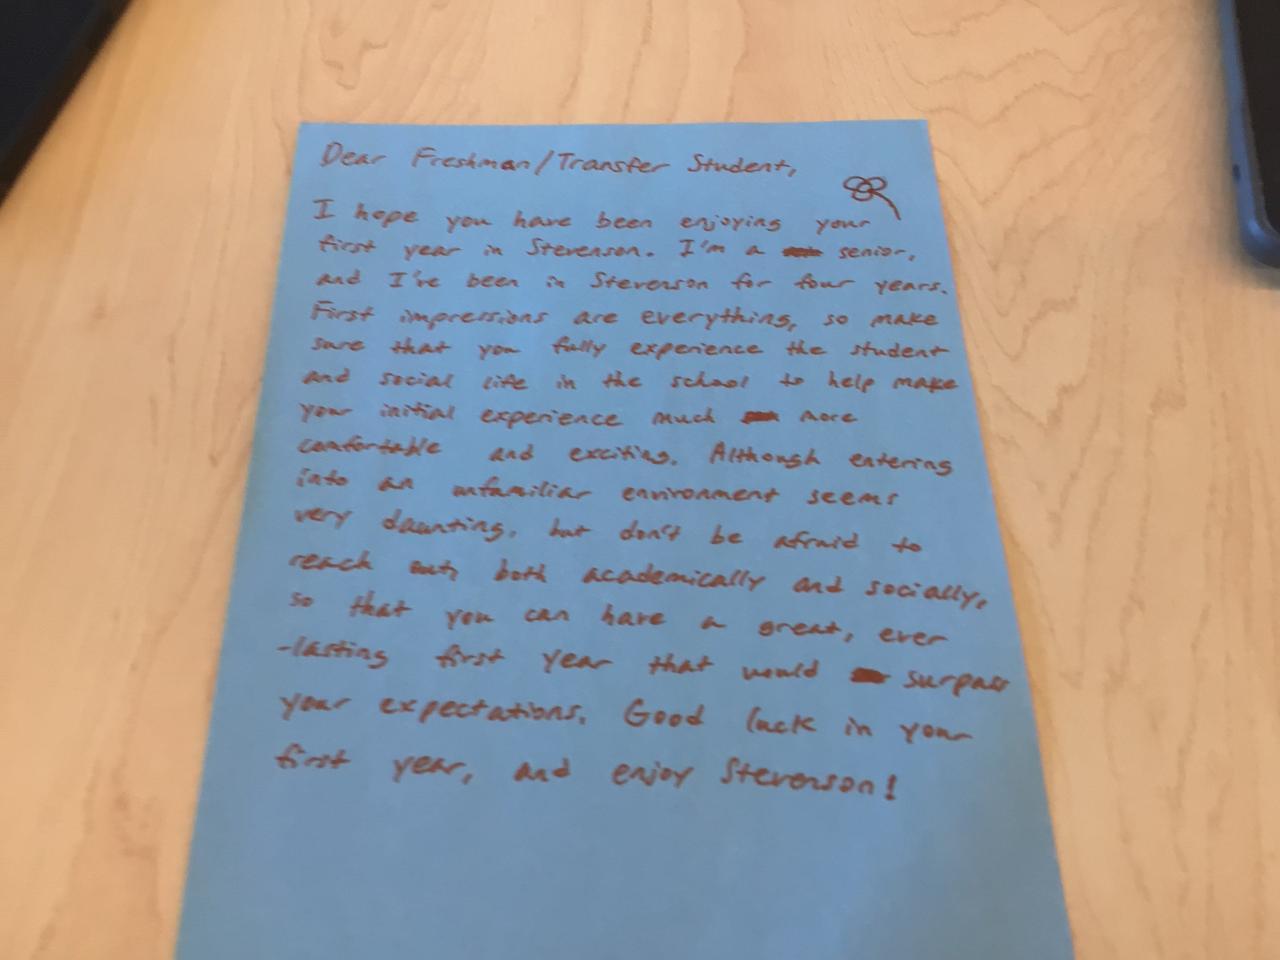 Dear Freshman/Transfer Student,
I hope you have been enjoying your
first year in Stevenson. I'm a senior,
and I've been in Stevenson for four years.
First impressions are everything, so make
sure that you fully experience the student
and social life in the school to help make
your initial experience much more
comfortable and exciting. Although entering
into an unfamiliar environment seems
very daunting, but don't be afraid to
reach out, both academically and socially,
so that you can have a great, ever
-lasting first year that would surpass
your expectations. Good luck in your
first year, and enjoy Stevenson!